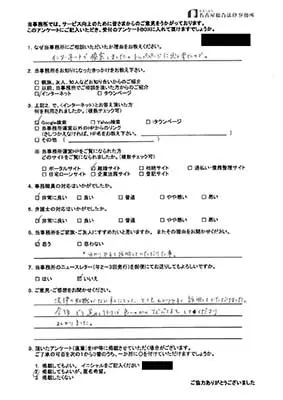 名古屋総合法律事務所
当事務所では、サービス向上のために皆さまからのご意見をうかがっております。
このアンケートにご記入いただき、受付のアンケートBOXに入れて頂けますでしょうか。
1. なぜ当事務所にご相談いただいたか理由をお教えください。
インターネットで検索しましたら、ホームページに
2. 当事務所をお知りになったきっかけをお教え下さい。
□ 親族、友人、知人などお知り合いからのご紹介
□ 以前、当事務所でご相談を頂いた方からのご紹介
☑ インターネット □ タウンページ
3. 上記2.で、インターネットとお答え頂いた方
何を利用されましたか。(複数チェック可)
☑ Google検索 □ Yahoo検索 □ タウンページ
□ 当事務所運営以外のHPからのリンク
□ その他( )
※ 当事務所運営HPをご覧になられた方
どのサイトをご覧になられましたか。(複数チェック可)
□ ポータルサイト ☑ 離婚サイト □ 相続サイト □ 過払い・債務整理サイト
□ 住宅ローンサイト □ 企業法務サイト □ 登記サイト
4. 事務職員の対応はいかがでしたか。
☑ 非常に良い □ 良い □ 普通 □ やや悪い □ 悪い
5. 弁護士の対応はいかがでしたか。
☑ 非常に良い □ 良い □ 普通 □ やや悪い □ 悪い
6. 当事務所をご家族・ご友人にすすめたいと思いますか。またその理由をお聞かせください。
☑ 思う □ 思わない
分かりやすく説明していただけた事。
7. 当事務所のニュースレター(年2~3回発行)を郵便にてお送りしてもよろしいですか。
□ はい ☑ いいえ
8. ご意見・ご感想をお聞かせください。
法律の知識がない私にとって、とても分かりやすく説明していただけました。
9. 頂いたアンケート(直筆)をHP等に掲載させていただく場合がございます。
1. 掲載してもよい。イニシャルをご記入ください
2. 掲載してもよいが、匿名希望。
3. 掲載したくない
ご協力ありがとうございました